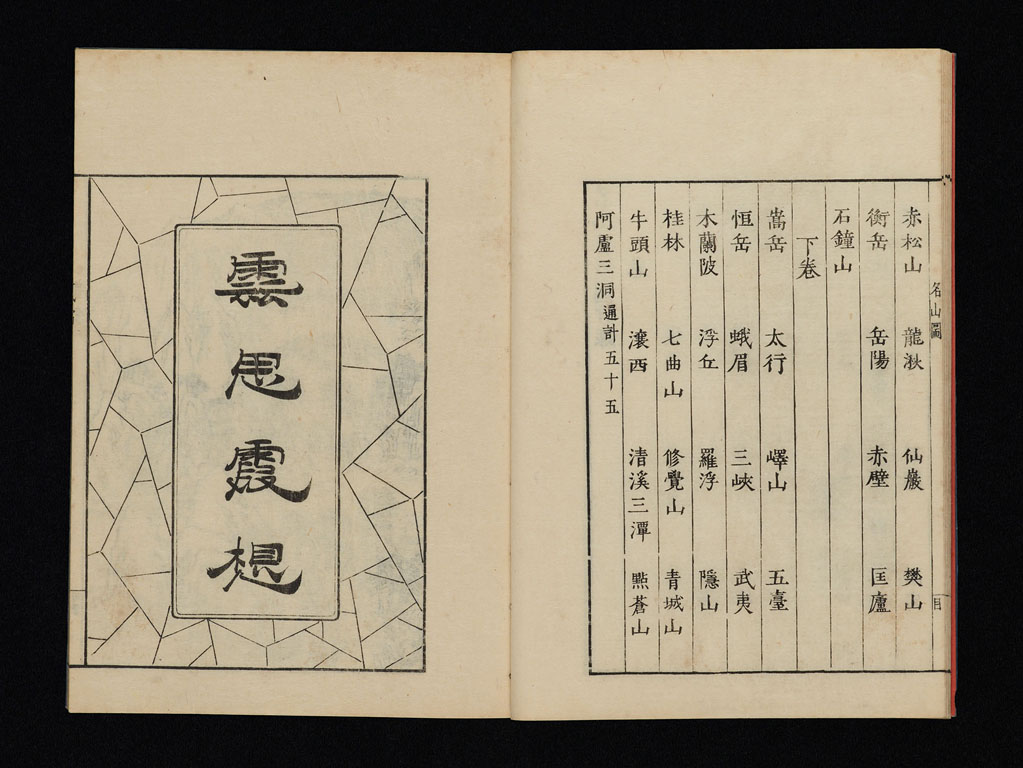 名山圖
目
赤松山 龍湫 仙巖 樊山
衡岳 岳陽 赤壁 匡廬
石鐘山
下卷
嵩岳 太行 嶧山 五臺
恒岳 蛾眉 三峽 武夷
木蘭陂 浮丘 羅浮 隱山
桂林 七曲山 修覺山 青城山
牛頭山 瀼西 清溪三潭 點蒼山
阿盧三洞 通計五十五
雲思霞想